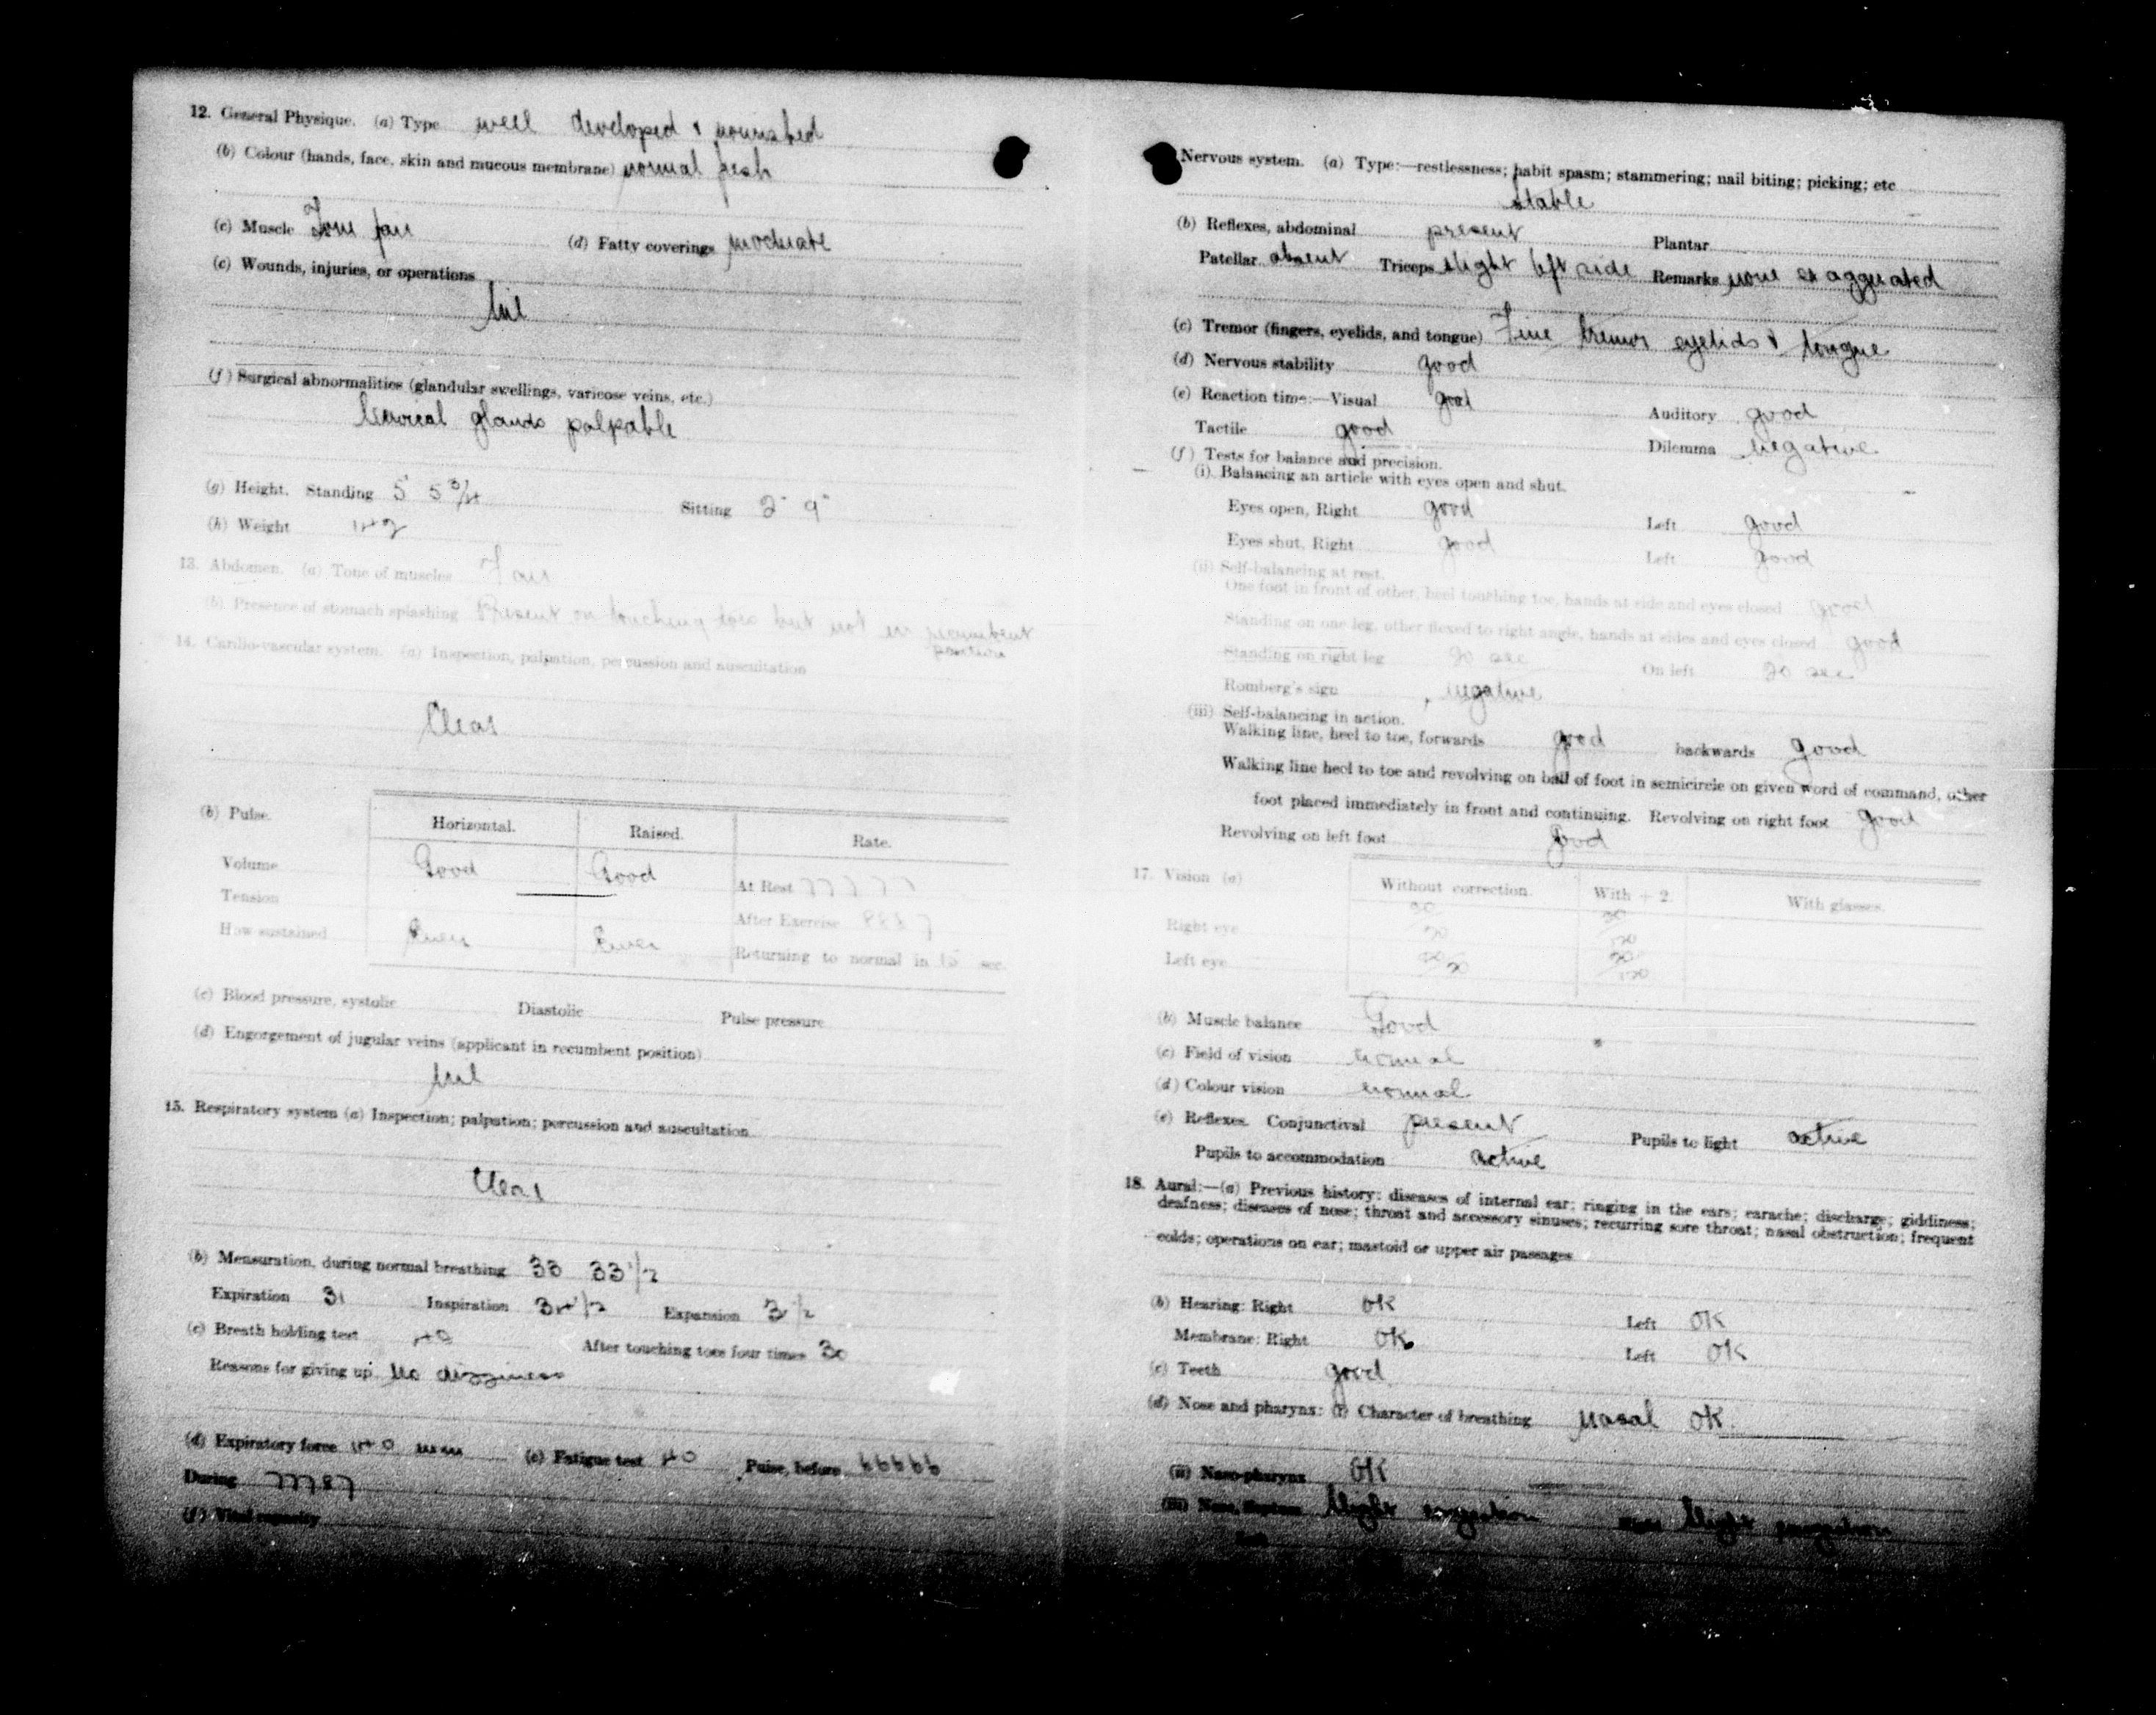 12. General Physique. (a) Type well developed & nourished
(b) Colour (hands, face, skin and mucous membrane) normal fresh
(c) Muscle Tone fair (d) Fatty coverings moderate
(e) Wounds, injuries, or operations
Nil
(f) Surgical abnormalities (glandular swellings, varicose veins, etc.)
Cervical glands palpable
(g) Height. Standing 5' 5 3/4 Sitting 2' 9"
(h) Weight 142
13. Abdomen. (a) Tone of muscles Fair
(b) Presence of stomach splashing Present on touching toes but not in recumbent
position
14. Cardio-vascular system. (a) Inspection, palpation, percussion and auscultation
Clear
(b) Pulse. Horizontal. Raised. Rate.
Volume Good Good At Rest 77777
Tension After Exercise
How sustained Even Even Returning to normal in 15 sec.
(c) Blood pressure, systolic Diastolic Pulse pressure
(d) Engorgement of jugular veins (applicant in recumbent position)
Nil
15. Respiratory system (a) Inspection; palpation; percussion and auscultation
Clear
(b) Mensuration, during normal breathing 33 33 1/2
Expiration 31 Inspiration 34 1/2 Expansion 3 1/2
(c) Breath holding test 40 After touching toes four times 30
Reasons for giving up No dizziness
(d) Expiratory force 140 mm (e) Fatigue test 40 Pulse, before 66666
During 77787
(f) Vital capacity
Nervous system. (a) Type:—restlessness; habit spasm; stammering; nail biting; picking; etc
stable
(b) Reflexes, abdominal present Plantar
Patellar absent Triceps slight left side Remarks none exaggerated
(c) Tremor (fingers, eyelids, and tongue) Fine tremor eyelids & tongue
(d) Nervous stability good
(e) Reaction time:—Visual good Auditory good
Tactile good Dilemma negative
(f) Tests for balance and precision.
(i). Balancing an article with eyes open and shut.
Eyes open, Right good Left good
Eyes shut, Right good Left good
(ii) Self-balancing at rest.
One foot in front of other, heel touching toe, hands at side and eyes closed good
Standing on one leg, other flexed to right angle, hands at sides and eyes closed good
Standing on right leg 20 sec On left 20 sec
Romberg's sign negative
(iii) Self-balancing in action.
Walking line, heel to toe, forwards good backwards good
Walking line heel to toe and revolving on ball of foot in semicircle on given word of command, other
foot placed immediately in front and continuing. Revolving on right foot good
Revolving on left foot good
17. Vision (a) Without correction. With + 2. With glasses.
Right eye 20/20
Left eye 20/20
(b) Muscle balance Good
(c) Field of vision normal
(d) Colour vision normal
(e) Reflexes. Conjunctival present Pupils to light active
Pupils to accommodation active
18. Aural:—(a) Previous history: diseases of internal ear; ringing in the ears; earache; discharge; giddiness;
deafness; diseases of nose; throat and accessory sinuses; recurring sore throat; nasal obstruction; frequent
colds; operations on ear; mastoid or upper air passages
(b) Hearing: Right OK Left OK
Membrane: Right OK Left OK
(c) Teeth good
(d) Nose and pharynx: (i) Character of breathing Nasal OK
(ii) Naso-pharynx OK
(iii) Nose, Septum Slight Slight